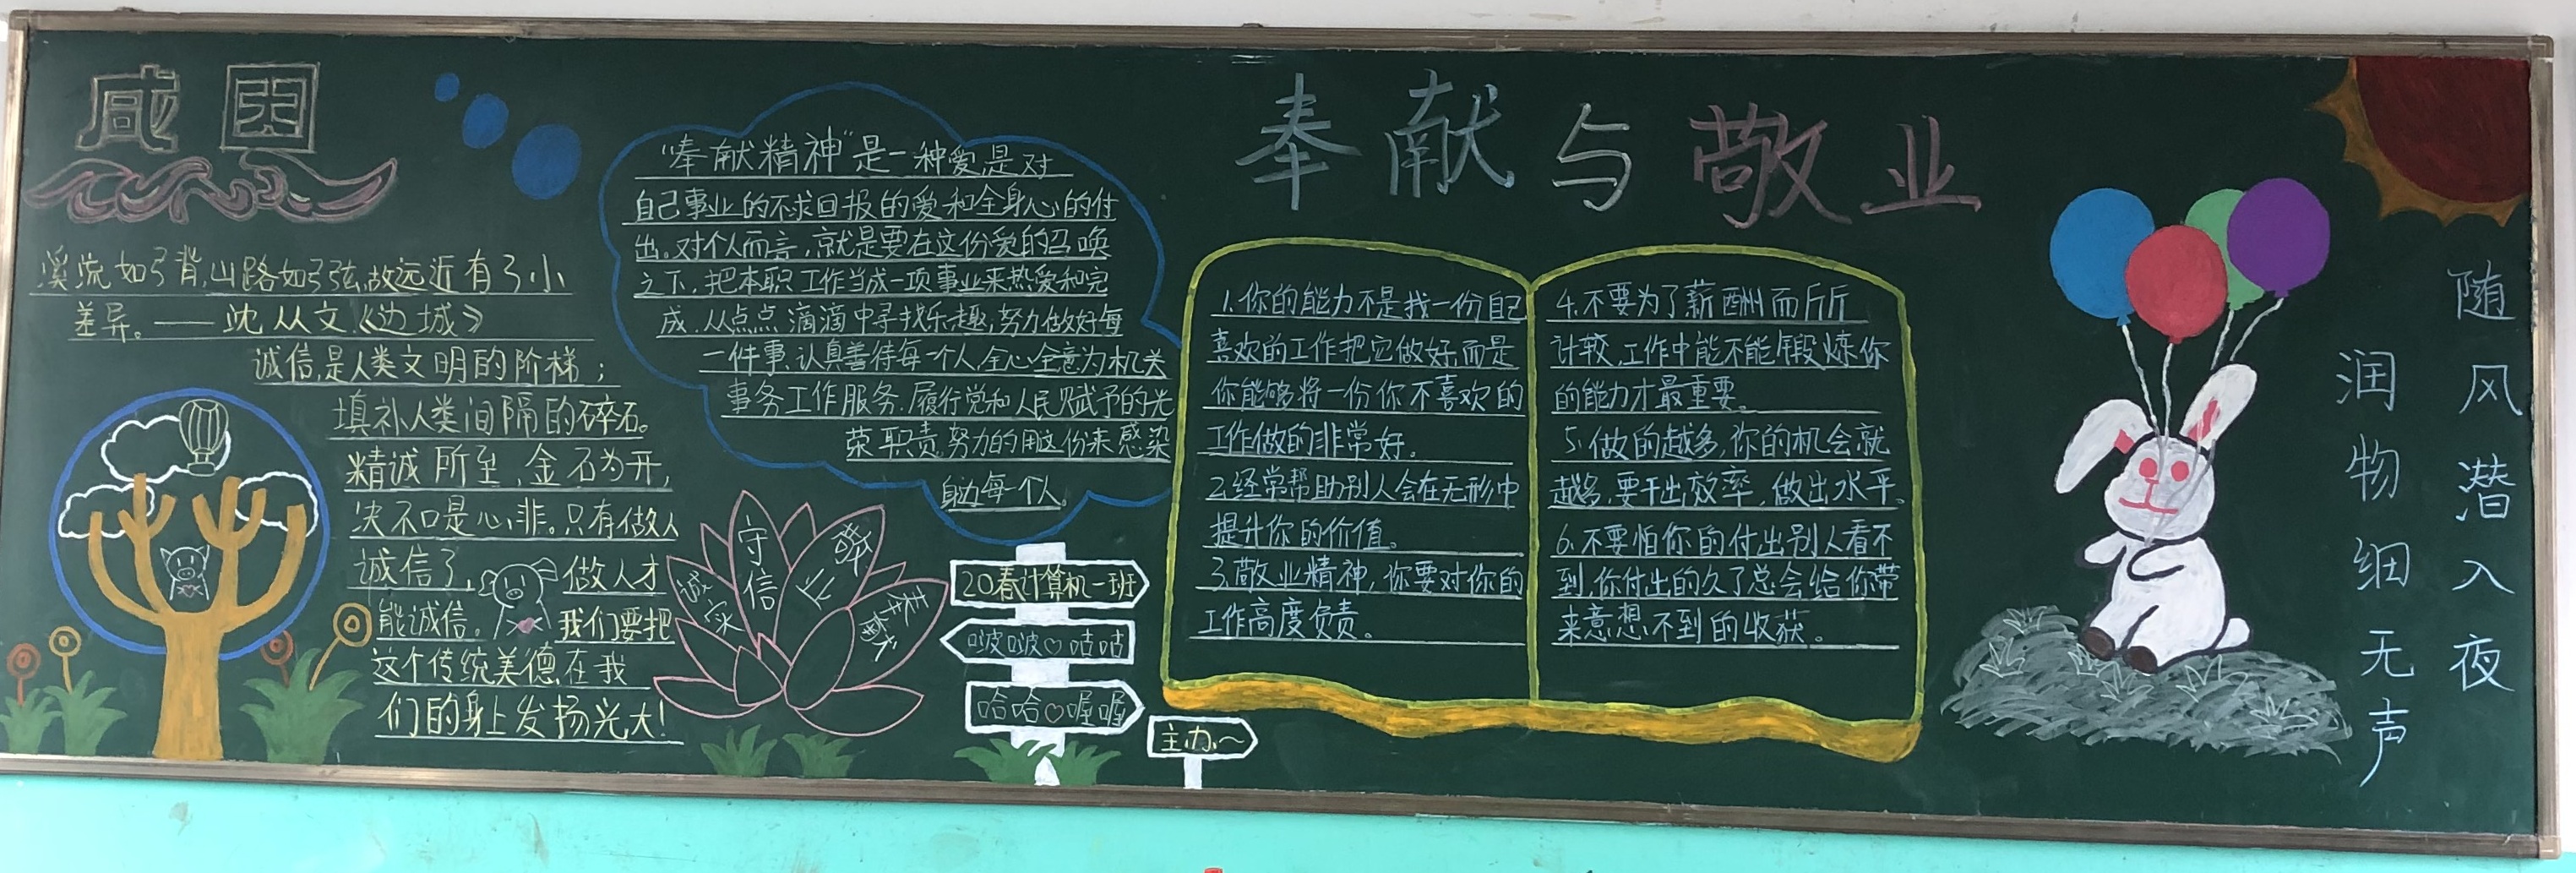 感 恩
溪流如弓背,山路如弓弦,故远近有了小
差异。——沈从文《边城》
诚信,是人类文明的阶梯;
填补人类间隔的碎石。
精诚所至,金石为开,
决不口是心非。只有做人
诚信了, 做人才
能诚信。 我们要把
这个传统美德在我
们的身上发扬光大!
“奉献精神”是一种爱,是对
自己事业的不求回报的爱和全身心的付
出。对个人而言,就是要在这份爱的召唤
之下,把本职工作当成一项事业来热爱和完
成,从点点滴滴中寻找乐趣,努力做好每
一件事、认真善待每一个人,全心全意为机关
事务工作服务,履行党和人民赋予的光
荣职责,努力的用这份来感染
身边每一个人。
诚实
守信
敬业
奉献
20春计算机一班
啵啵♡咕咕
哈哈♡喔喔
主办~
奉献与敬业
1.你的能力不是找一份自己
喜欢的工作把它做好,而是
你能够将一份你不喜欢的
工作做的非常好。
2.经常帮助别人会在无形中
提升你的价值。
3.敬业精神,你要对你的
工作高度负责。
4.不要为了薪酬而斤斤
计较,工作中能不能锻炼你
的能力才最重要。
5.做的越多,你的机会就
越多,要干出效率,做出水平。
6.不要怕你的付出别人看不
到,你付出的久了总会给你带
来意想不到的收获。
随风潜入夜
润物细无声